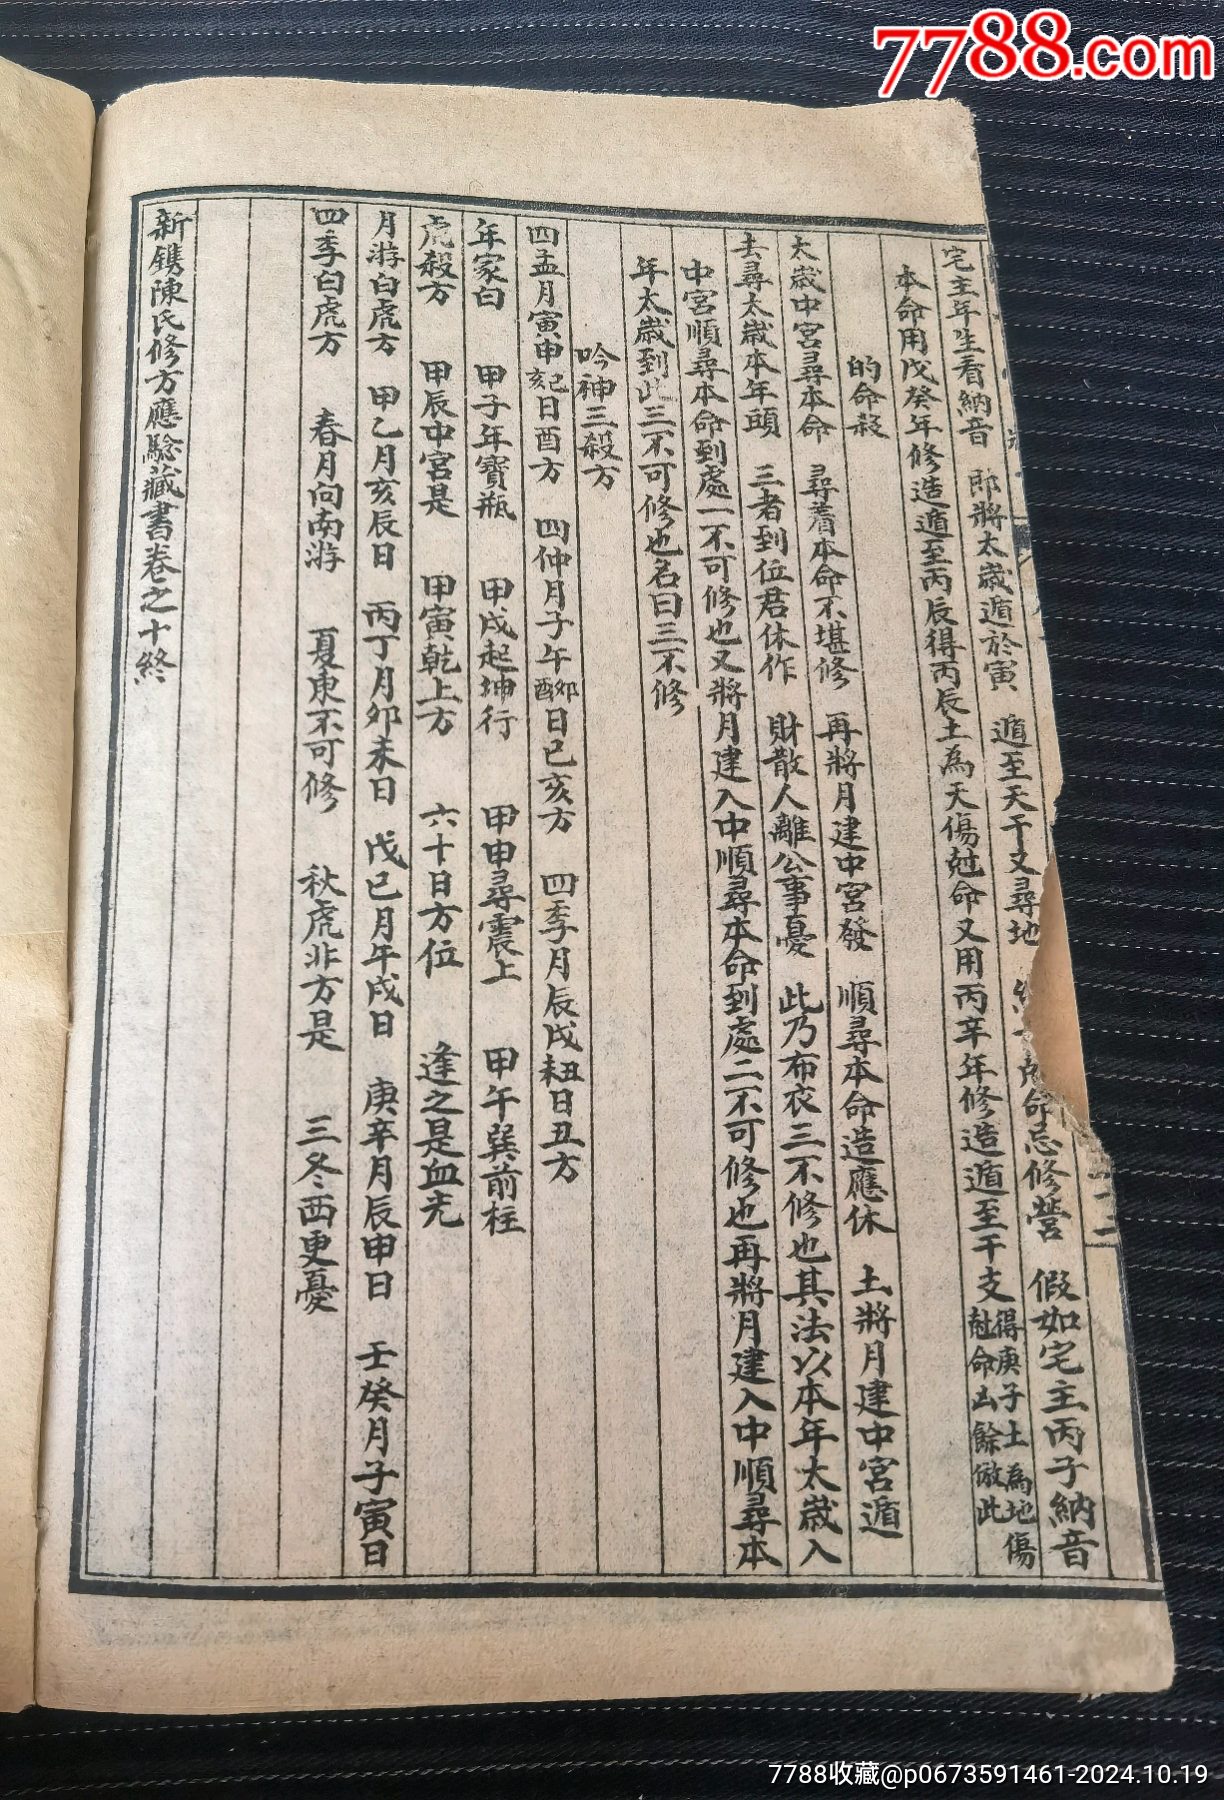 7788.com
宅主年生看納音 即將太歲遁於寅 遁至天干又尋地 命忌修營 假如宅主丙子納音
本命用戊癸年修造遁至丙辰得丙辰土為天傷尅命又用丙辛年修造遁至干支得庚子土為地傷尅命凶餘倣此
的命殺
太歲中宮尋本命 尋着本命不堪修 再將月建中宮發 順尋本命造應休 土將月建中宮遁
去尋太歲本年頭 三者到位君休作 財散人離公事憂 此乃布衣三不修也其法以本年太歲入
中宮順尋本命到處一不可修也又將月建入中順尋本命到處二不可修也再將月建入中順尋本
年太歲到此三不可修也名曰三不修
吟神三殺方
四孟月寅申巳亥日酉方 四仲月子午卯酉日巳亥方 四季月辰戌丑未日丑方
年家白 甲子年寶瓶 甲戌起坤行 甲申尋震上 甲午巽前柱
虎殺方 甲辰中宮是 甲寅乾上方 六十日方位 逢之是血光
月游白虎方 甲乙月亥辰日 丙丁月卯未日 戊巳月午戌日 庚辛月辰申日 壬癸月子寅日
四季白虎方 春月向南游 夏東不可修 秋虎非方是 三冬西更憂
新鐫陳氏修方應驗藏書卷之十終
7788收藏@p0673591461-2024.10.19